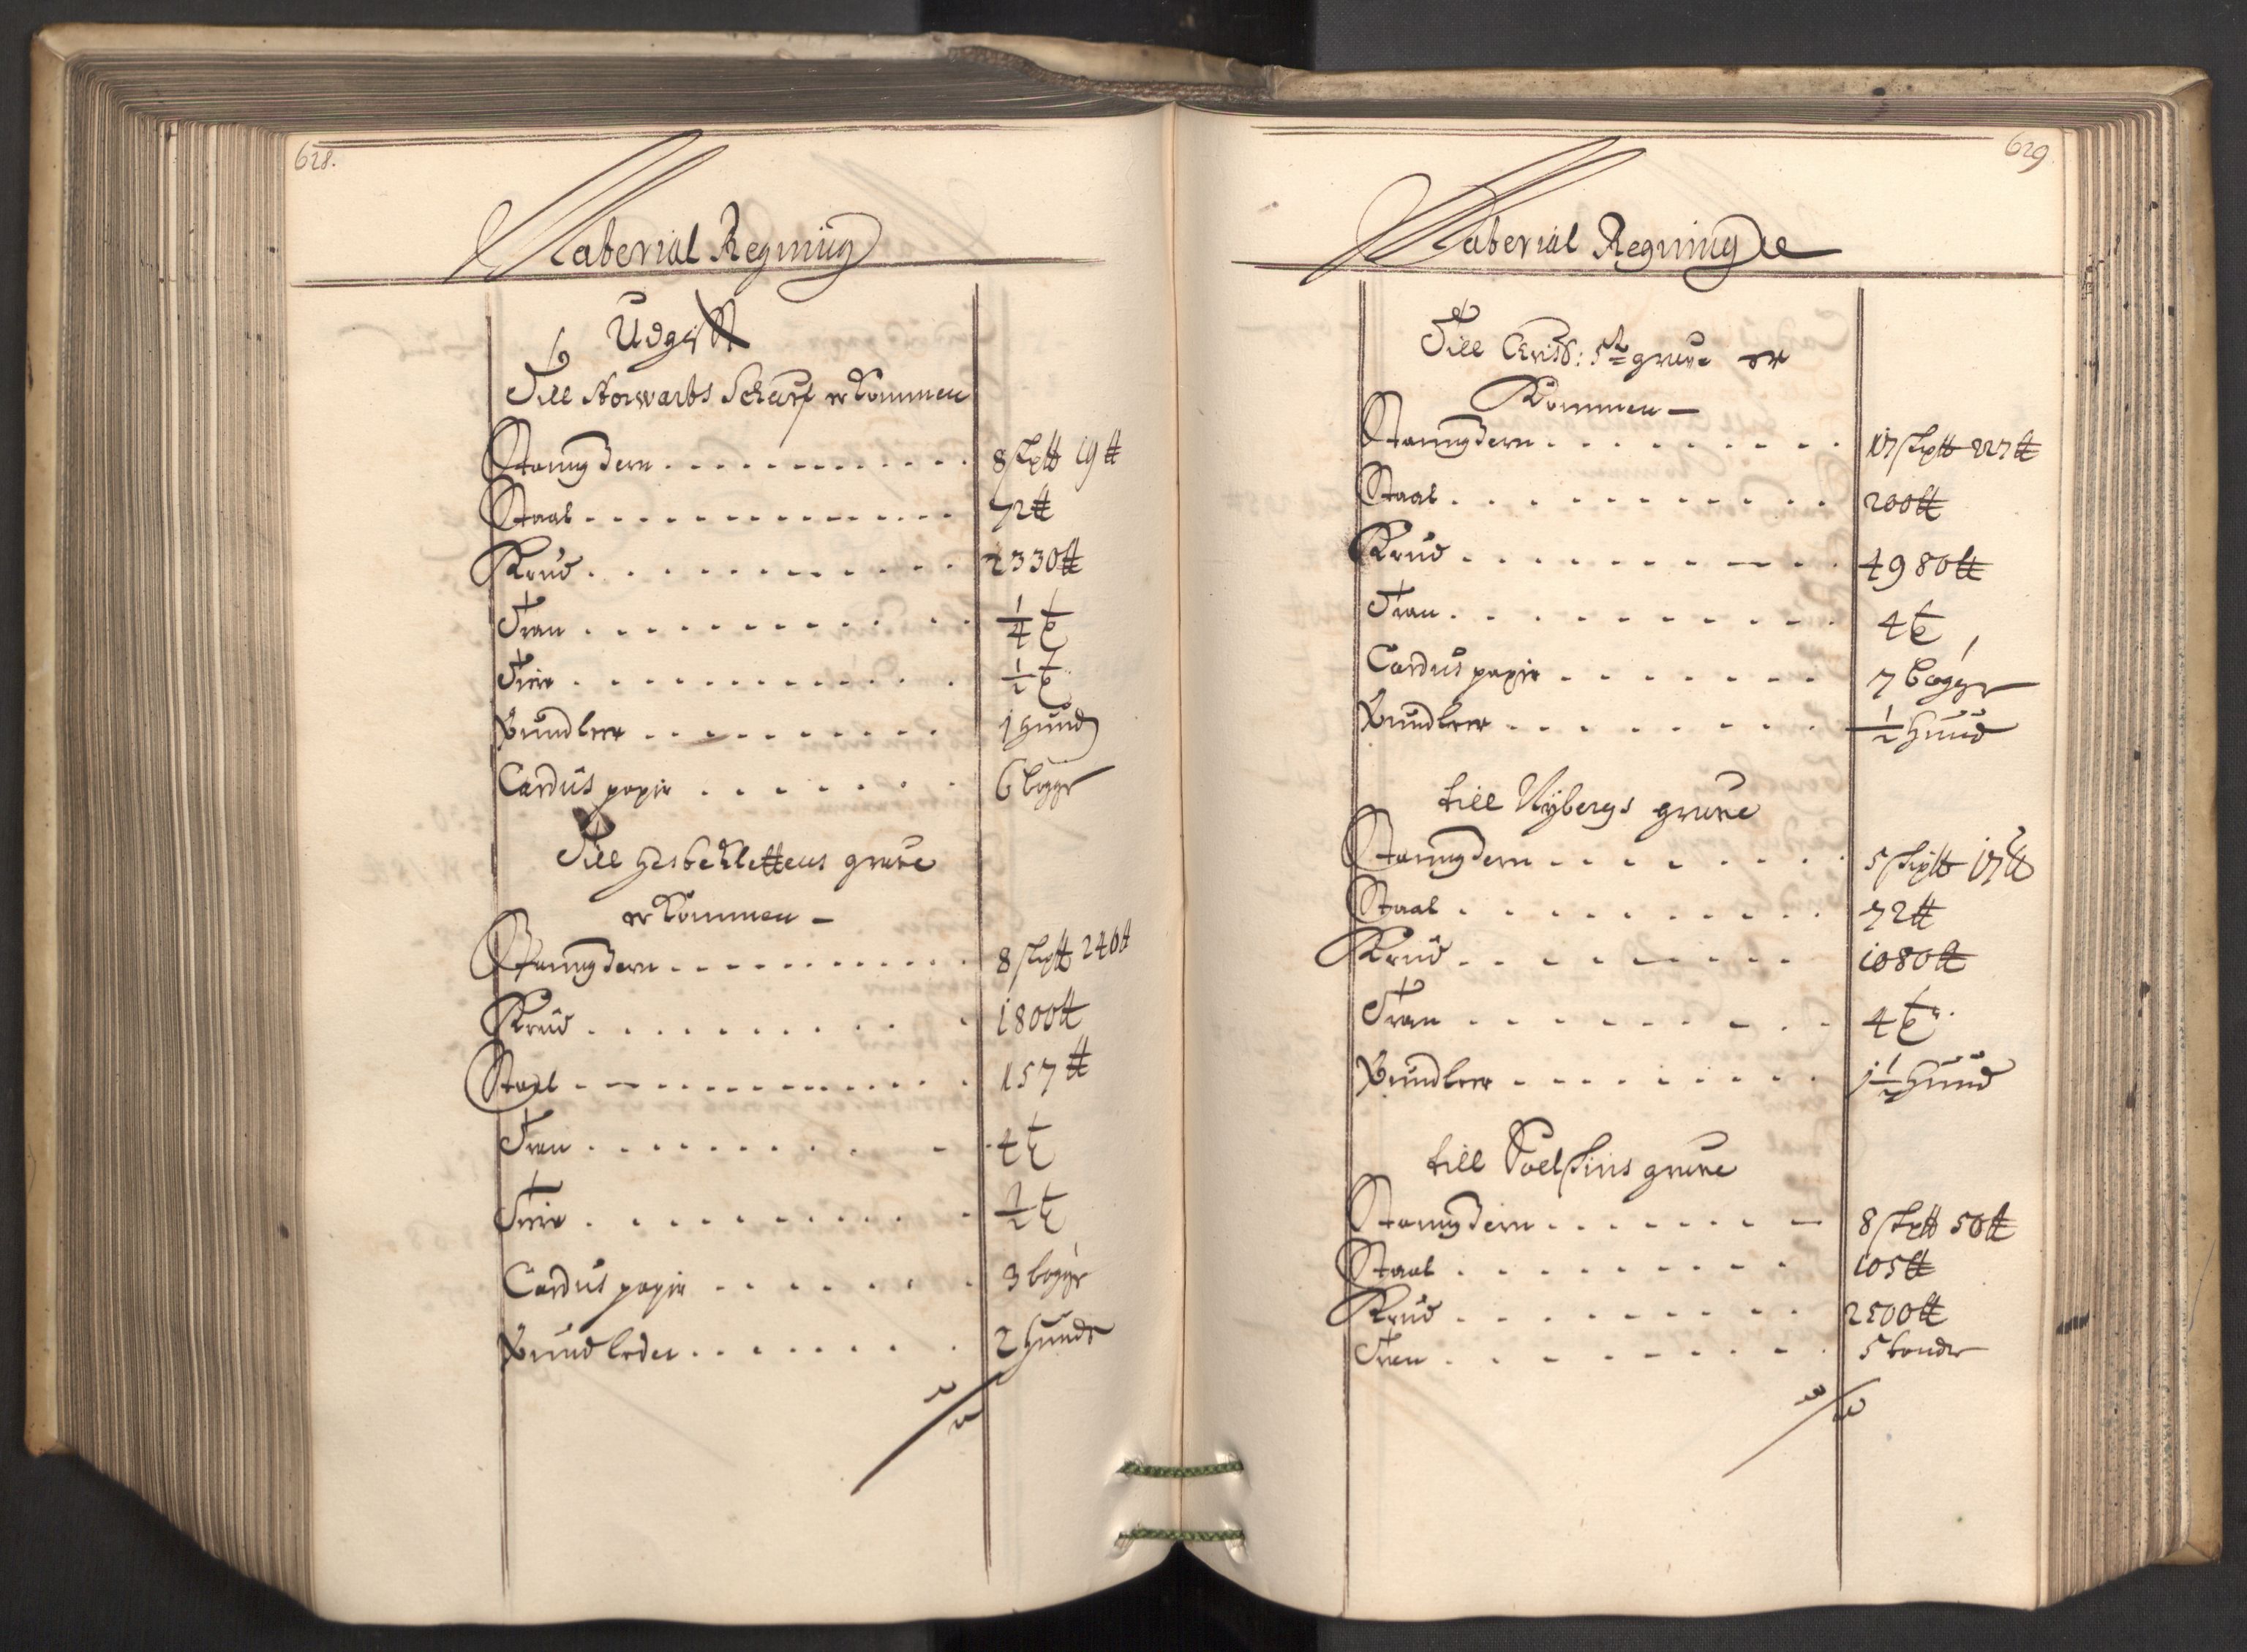 628.
Material Regning
Udgifft
Till Norwarts Schurf er kommen
Stangjern . . . . . . . . . . . . 8 skp℔ 19 ℔
Staal . . . . . . . . . . . . . . 72 ℔
Krud . . . . . . . . . . . . 2330 ℔
Tran . . . . . . . . . . . . 1/4 t
Tiere . . . . . . . . . . . . 1/2 t
Bundleer . . . . . . . . . . 1 hund
Cardus papir . . . . . . . 6 bøger
Till Hesteklettens gruve
er kommen –
Stangjern . . . . . . . . . . . . 8 skp℔ 240 ℔
Krud . . . . . . . . . . . 1800 ℔
Staal . . . . . . . . . . . . . 157 ℔
Tran . . . . . . . . . . . 4 t
Tiere . . . . . . . . . . . 1/2 t
Cardus papir . . . . . . . 3 bøger
Bundleder . . . . . . . . 2 hundr
629
Material Regning
Till Crist: 5te gruve er
Kommen –
Stangjern . . . . . . . . . 17 skp℔ 227 ℔
Staal . . . . . . . . . . . 200 ℔
Krud . . . . . . . . . . . 4980 ℔
Tran . . . . . . . . . . . 4 t
Cardus papir . . . . . . . 7 bøger
Bundleer . . . . . . . . . 1/2 hund
till Nÿbergs gruve
Stangjern . . . . . . . . . 5 skp℔ 17 ℔
Staal . . . . . . . . . . . 72 ℔
Krud . . . . . . . . . . 1080 ℔
Tran . . . . . . . . . . 4 t
Bundleer . . . . . . . . . 1 1/2 hund
till gruve
Stangjern . . . . . . . . 8 skp℔ 50 ℔
Staal . . . . . . . . . . 105 ℔
Krud . . . . . . . . . 2500 ℔
Tran . . . . . . . . . . 5 tønder